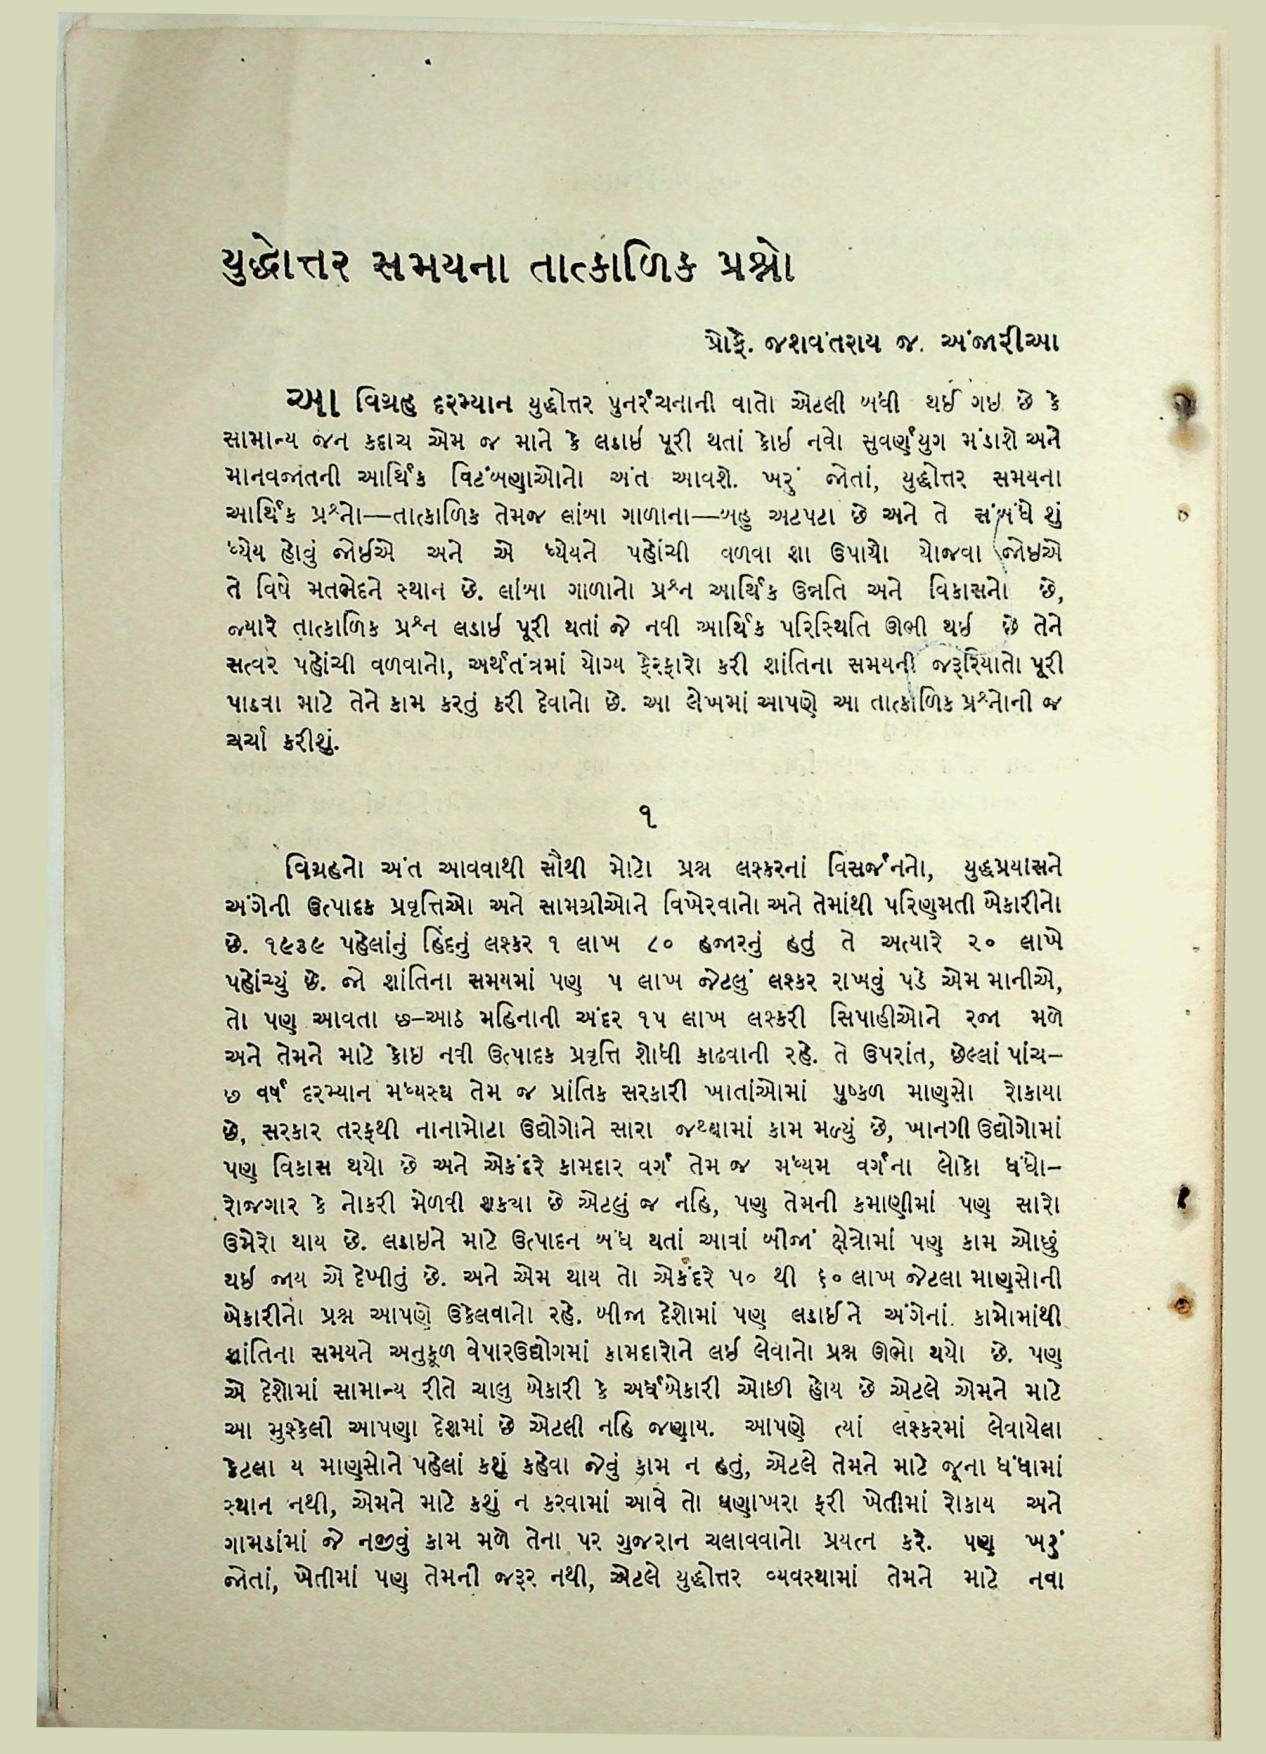 યુદ્ધોત્તર સમયના તાત્કાળિક પ્રશ્નો
પ્રોફે. જશવંતરાય જ. અંજારીઆ
આ વિગ્રહ દરમ્યાન યુદ્ધોત્તર પુનર્રચનાની વાતો એટલી બધી થઈ ગઇ છે કે
સામાન્ય જન કદાચ એમ જ માને કે લડાઇ પૂરી થતાં કોઇ નવો સુવર્ણયુગ મંડાશે અને
માનવજાતની આર્થિક વિટંબણાઓનો અંત આવશે. ખરું જોતાં, યુદ્ધોત્તર સમયના
આર્થિક પ્રશ્નો—તાત્કાળિક તેમજ લાંબા ગાળાના—બહુ અટપટા છે અને તે સંબંધે શું
ધ્યેય હોવું જોઇએ અને એ ધ્યેયને પહોંચી વળવા શા ઉપાયો યોજવા જોઇએ
તે વિષે મતભેદને સ્થાન છે. લાંબા ગાળાનો પ્રશ્ન આર્થિક ઉન્નતિ અને વિકાસનો છે,
જ્યારે તાત્કાળિક પ્રશ્ન લડાઇ પૂરી થતાં જે નવી આર્થિક પરિસ્થિતિ ઊભી થઇ છે તેને
સત્વર પહોંચી વળવાનો, અર્થતંત્રમાં યોગ્ય ફેરફારો કરી શાંતિના સમયની જરૂરિયાતો પૂરી
પાડવા માટે તેને કામ કરતું કરી દેવાનો છે. આ લેખમાં આપણે આ તાત્કાળિક પ્રશ્નોની જ
ચર્ચા કરીશું.
૧
વિગ્રહનો અંત આવવાથી સૌથી મોટો પ્રશ્ન લશ્કરનાં વિસર્જનનો, યુદ્ધપ્રયાસને
અંગેની ઉત્પાદક પ્રવૃત્તિઓ અને સામગ્રીઓને વિખેરવાનો અને તેમાંથી પરિણમતી બેકારીનો
છે. ૧૯૩૯ પહેલાંનું હિંદનું લશ્કર ૧ લાખ ૮૦ હજારનું હતું તે અત્યારે ૨૦ લાખે
પહોંચ્યું છે. જો શાંતિના સમયમાં પણ ૫ લાખ જેટલું લશ્કર રાખવું પડે એમ માનીએ,
તો પણ આવતા છ-આઠ મહિનાની અંદર ૧૫ લાખ લશ્કરી સિપાહીઓને રજા મળે
અને તેમને માટે કોઇ નવી ઉત્પાદક પ્રવૃત્તિ શોધી કાઢવાની રહે. તે ઉપરાંત, છેલ્લાં પાંચ-
છ વર્ષ દરમ્યાન મધ્યસ્થ તેમ જ પ્રાંતિક સરકારી ખાતાંઓમાં પુષ્કળ માણસો રોકાયા
છે, સરકાર તરફથી નાનામોટા ઉદ્યોગોને સારા જથ્થામાં કામ મળ્યું છે, ખાનગી ઉદ્યોગોમાં
પણ વિકાસ થયો છે અને એકંદરે કામદાર વર્ગ તેમ જ મધ્યમ વર્ગના લોકો ધંધો-
રોજગાર કે નોકરી મેળવી શક્યા છે એટલું જ નહિ, પણ તેમની કમાણીમાં પણ સારો
ઉમેરો થાય છે. લડાઇને માટે ઉત્પાદન બંધ થતાં આવાં બીજાં ક્ષેત્રોમાં પણ કામ ઓછું
થઇ જાય એ દેખીતું છે. અને એમ થાય તો એકંદરે ૫૦ થી ૬૦ લાખ જેટલા માણસોની
બેકારીનો પ્રશ્ન આપણે ઉકેલવાનો રહે. બીજા દેશોમાં પણ લડાઈને અંગેનાં કામોમાંથી
શાંતિના સમયને અનુકૂળ વેપારઉદ્યોગમાં કામદારોને લઇ લેવાનો પ્રશ્ન ઊભો થયો છે. પણ
એ દેશોમાં સામાન્ય રીતે ચાલુ બેકારી કે અર્ધબેકારી ઓછી હોય છે એટલે એમને માટે
આ મુશ્કેલી આપણા દેશમાં છે એટલી નહિ જણાય. આપણે ત્યાં લશ્કરમાં લેવાયેલા
કેટલા ય માણસોને પહેલાં કશું કહેવા જેવું કામ ન હતું, એટલે તેમને માટે જૂના ધંધામાં
સ્થાન નથી, એમને માટે કશું ન કરવામાં આવે તો ઘણાખરા ફરી ખેતીમાં રોકાય અને
ગામડાંમાં જે નજીવું કામ મળે તેના પર ગુજરાન ચલાવવાનો પ્રયત્ન કરે. પણ ખરું
જોતાં, ખેતીમાં પણ તેમની જરૂર નથી, એટલે યુદ્ધોત્તર વ્યવસ્થામાં તેમને માટે નવા